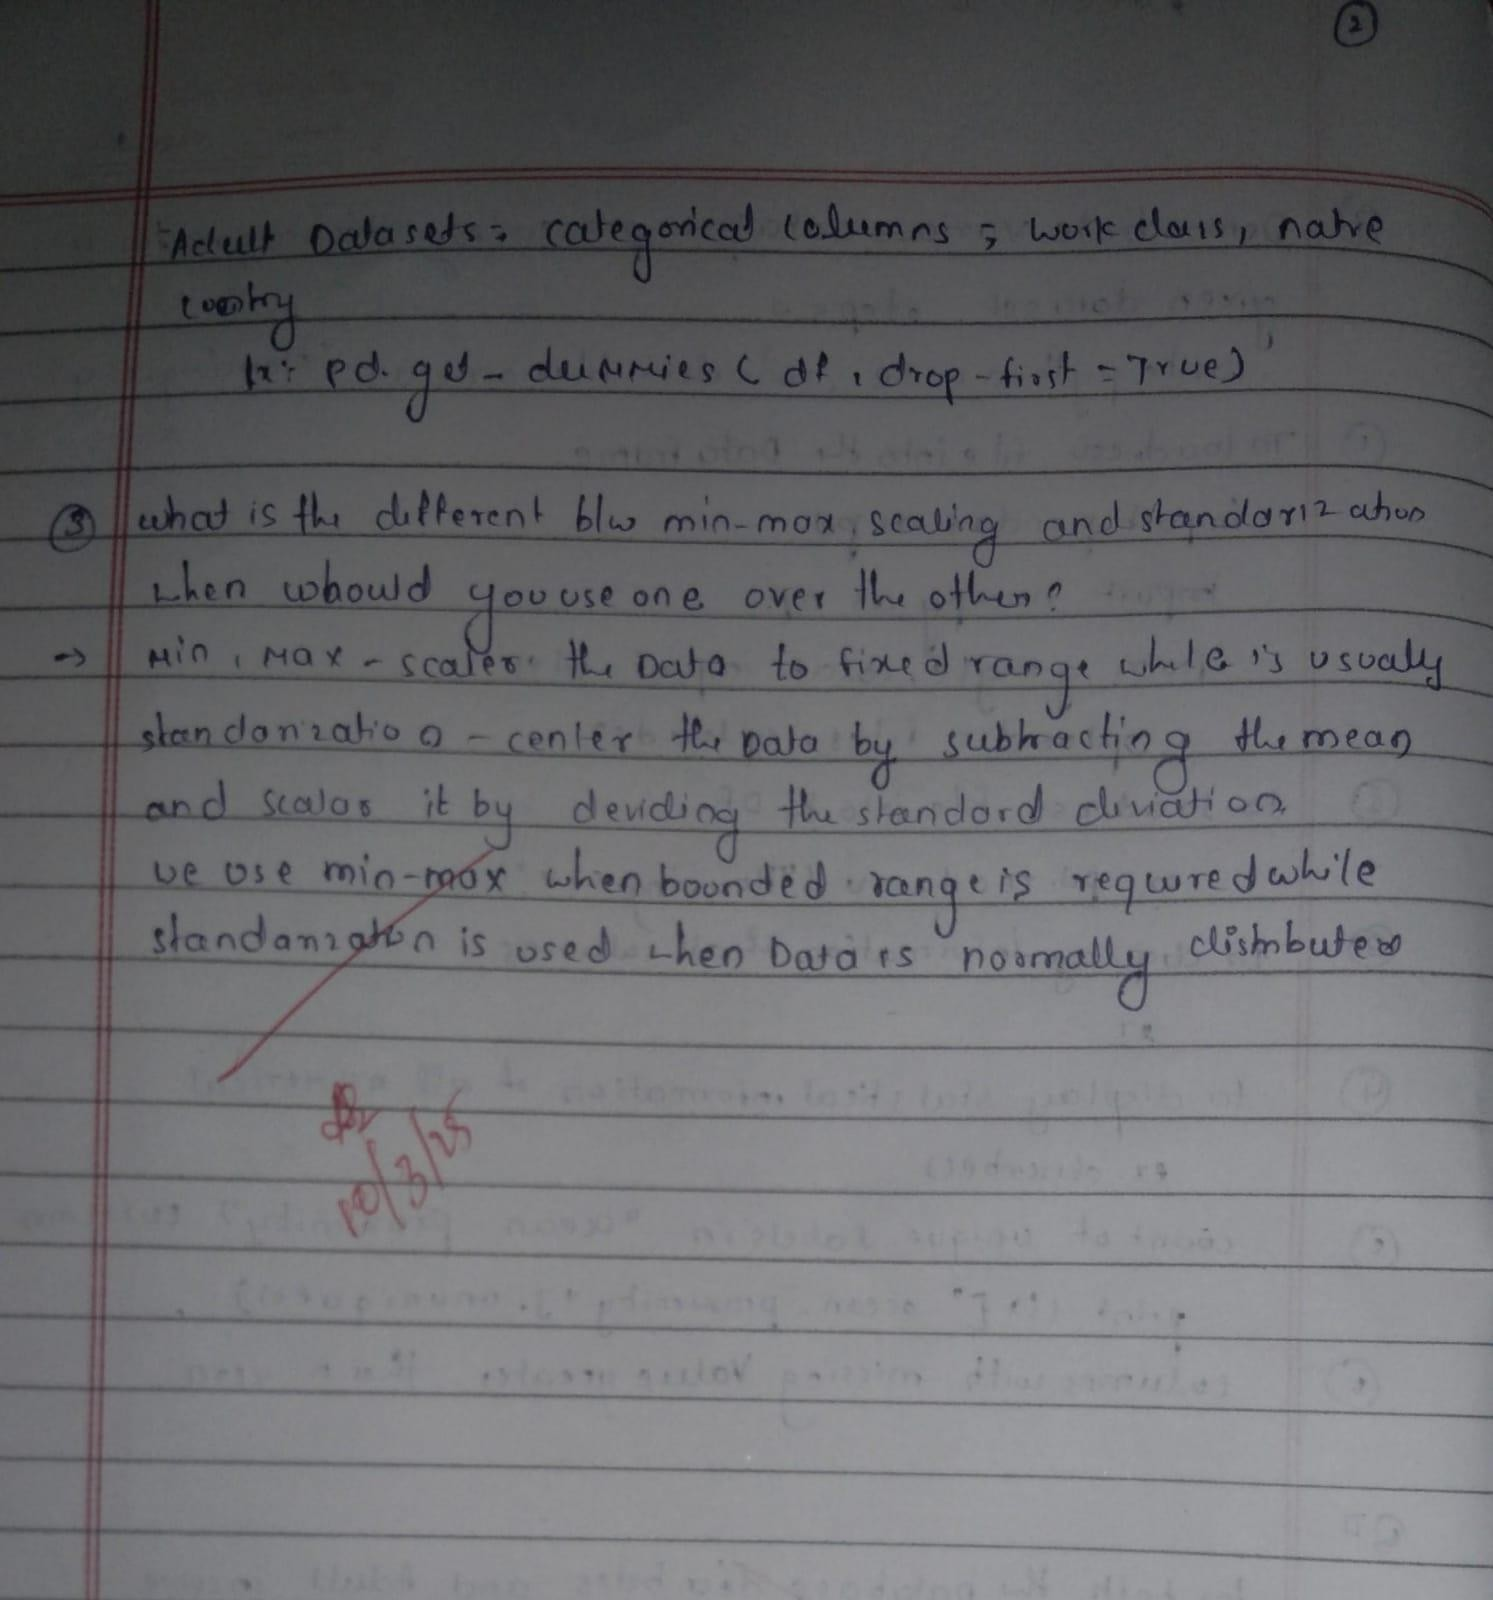 2
Adult Datasets: categorical columns; work class, native
country
Ex: pd.get-dummies (df, drop-first = True)
③ what is the different b/w min-max, scaling and standarization
when whould you use one over the other?
→ Min, Max - scales the Data to fixed range while is usually
standarization - center the Data by subtracting the mean
and scalas it by deviding the standard diviation
we use min-max when bounded range is requred while
standarization is used when Data is normally distributed
10/3/25